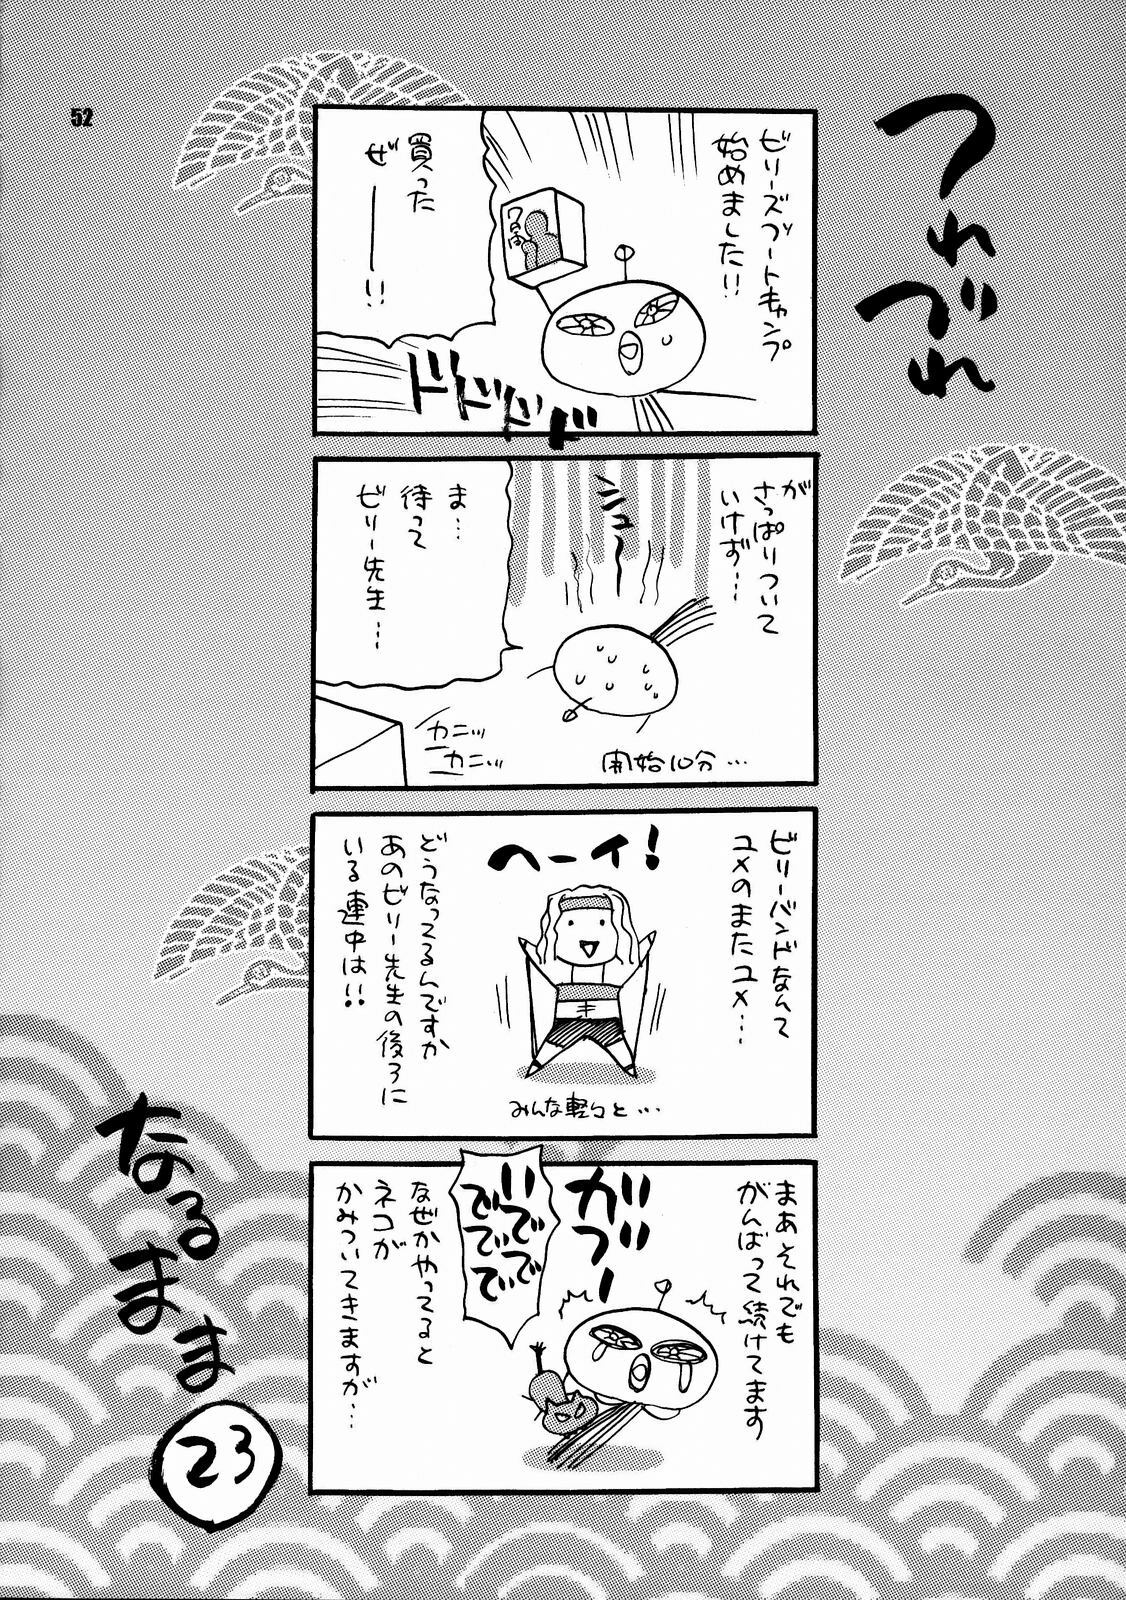 52
つれづれ
ビリーズブートキャンプ
始めました!!
買った
ぜーー!!
ドドドド
が
さっぱりついて
いけず…
シュー
ま…
待って
ビリー先生…
カニッ
カニッ
開始10分…
ビリーバンドなんて
ユメのまたユメ…
ヘーイ!
みんな軽々と…
どうなってるんですか
あのビリー先生の後ろに
いる連中は!!
まぁそれでも
がんばって続けてます
ガブー
いででで
ででで
なぜかやってると
ネコが
かみついてきますが…
なるまま
23